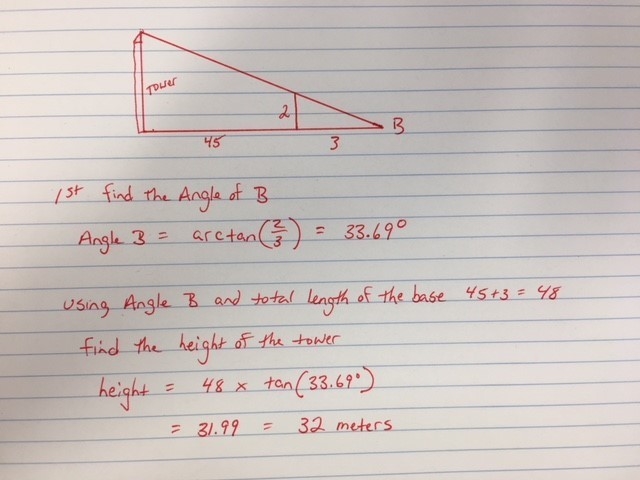 Tower
2
B
45
3
1st find the Angle of B
Angle B = arctan(2/3) = 33.69°
using Angle B and total length of the base 45+3 = 48
find the height of the tower
height = 48 x tan(33.69°)
= 31.99 = 32 meters